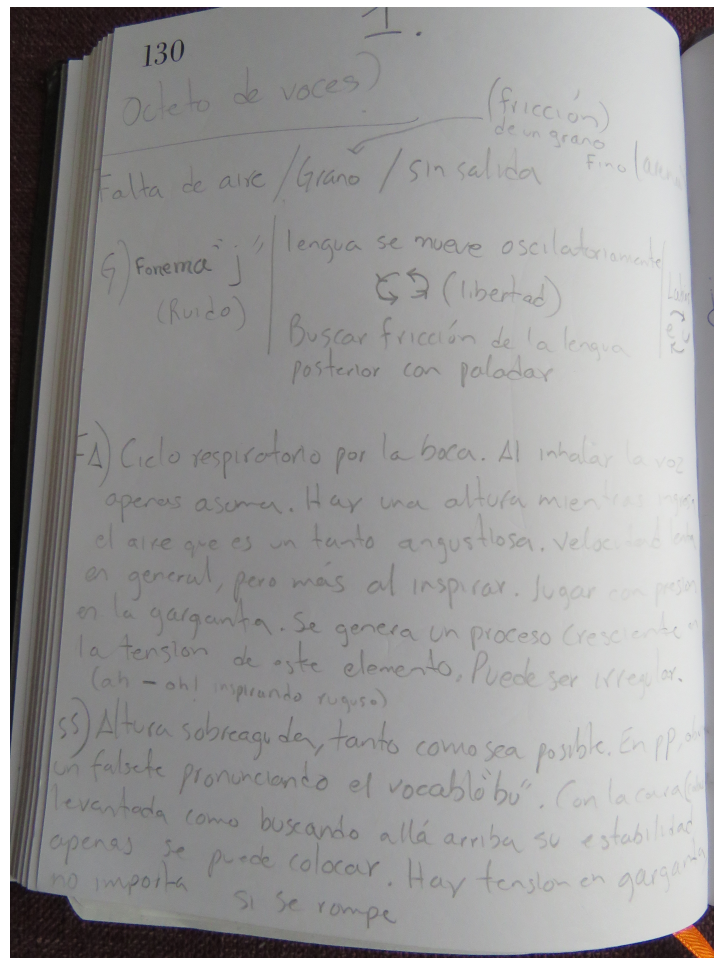 1.
130
Octeto de voces)
(fricción)
de un grano
Fino (arena
Falta de aire / Grano / sin salida
G) Fonema "j" | lengua se mueve oscilatoriamente
(Ruido)
(libertad)
Buscar fricción de la lengua
posterior con paladar
e u
FA) Ciclo respiratorio por la boca. Al inhalar la voz
apenas asoma. Hay una altura mientras ingresa
el aire que es un tanto angustiosa. Velocidad lenta
en general, pero más al inspirar. Jugar con presión
en la garganta. Se genera un proceso cresciente en
la tension de este elemento. Puede ser irregular.
(ah - oh! inspirando rugoso)
SS) Altura sobreaguda, tanto como sea posible. En pp,
un falsete pronunciando el vocablo "bu". Con la cara
levantada como buscando allá arriba su estabilidad
apenas se puede colocar. Hay tension en garganta
no importa si se rompe